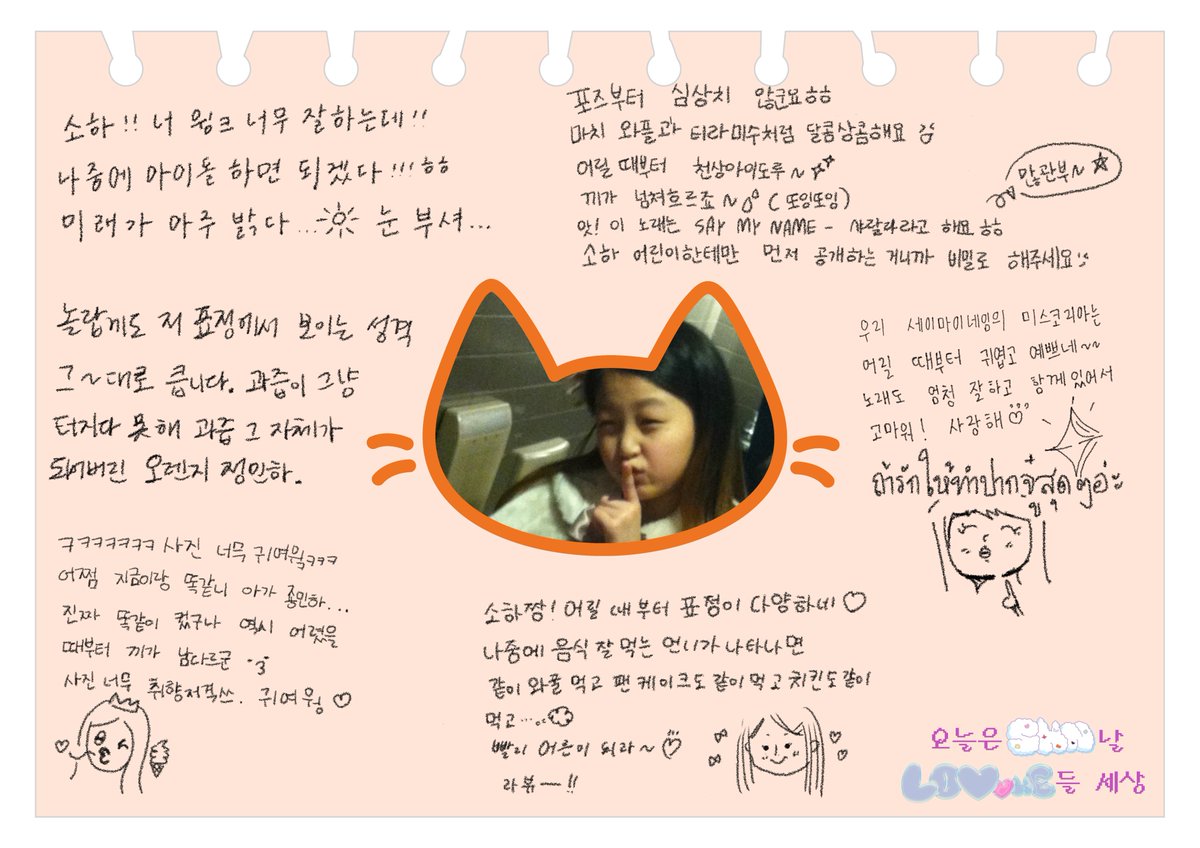 소하!! 너 윙크 너무 잘하는데!!
나중에 아이돌 하면 되겠다!!!ㅎㅎ
미래가 아주 밝다... 눈 부셔...
포즈부터 심상치 않군요ㅎㅎ
마치 와플과 티라미수처럼 달콤상콤해요
어릴 때부터 천상아이도루~
끼가 넘쳐흐르죠~ (또잉또잉)
앗! 이 노래는 SAY MY NAME - 샤랄라라고 해요ㅎㅎ
소하 어린이한테만 먼저 공개하는 거니까 비밀로 해주세요
많관부~
놀랍게도 저 표정에서 보이는 성격
그~대로 큽니다. 과즙이 그냥
터지다 못해 과즙 그 자체가
돼버린 오렌지 정인하.
우리 세이마이네임의 미스코리아는
어릴 때부터 귀엽고 예쁘네~~
노래도 엄청 잘하고 함께 있어서
고마워! 사랑해♡
ถ้ารักให้ทำปากจู๋สุดๆอ่ะ
ㅋㅋㅋㅋㅋㅋㅋ 사진 너무 귀여웤ㅋㅋㅋ
어쩜 지금이랑 똑같니 아가
진짜 똑같이 컸구나 역시 어렸을
때부터 끼가 남다르군
사진 너무 취향저격쓰. 귀여웡♡
소하짱! 어릴 때부터 표정이 다양하네♡
나중에 음식 잘 먹는 언니가 나타나면
같이 와풀 먹고 팬케이크도 같이 먹고 치킨도 같이
먹고....
빨리 어른이 되라~
라뷰ー!!
오늘은 날
들 세상